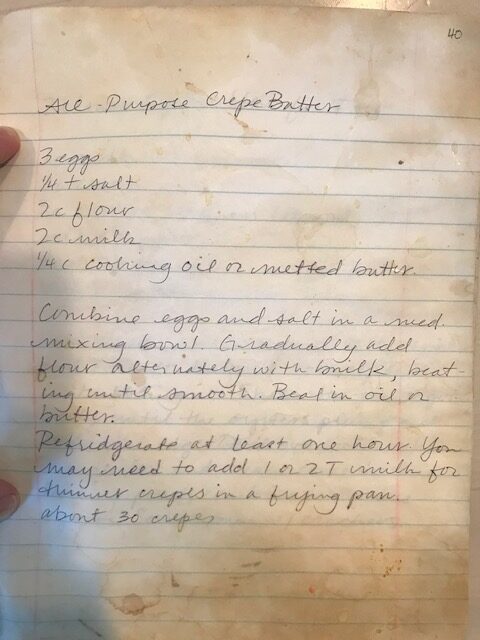 40
All-Purpose Crepe Batter
3 eggs
1/4 t salt
2c flour
2c milk
1/4 c cooking oil or melted butter.
Combine eggs and salt in a med.
mixing bowl. Gradually add
flour alternately with milk, beat-
ing until smooth. Beat in oil or
butter.
Refridgerate at least one hour. You
may need to add 1 or 2 T milk for
thinner crepes in a frying pan.
about 30 crepes